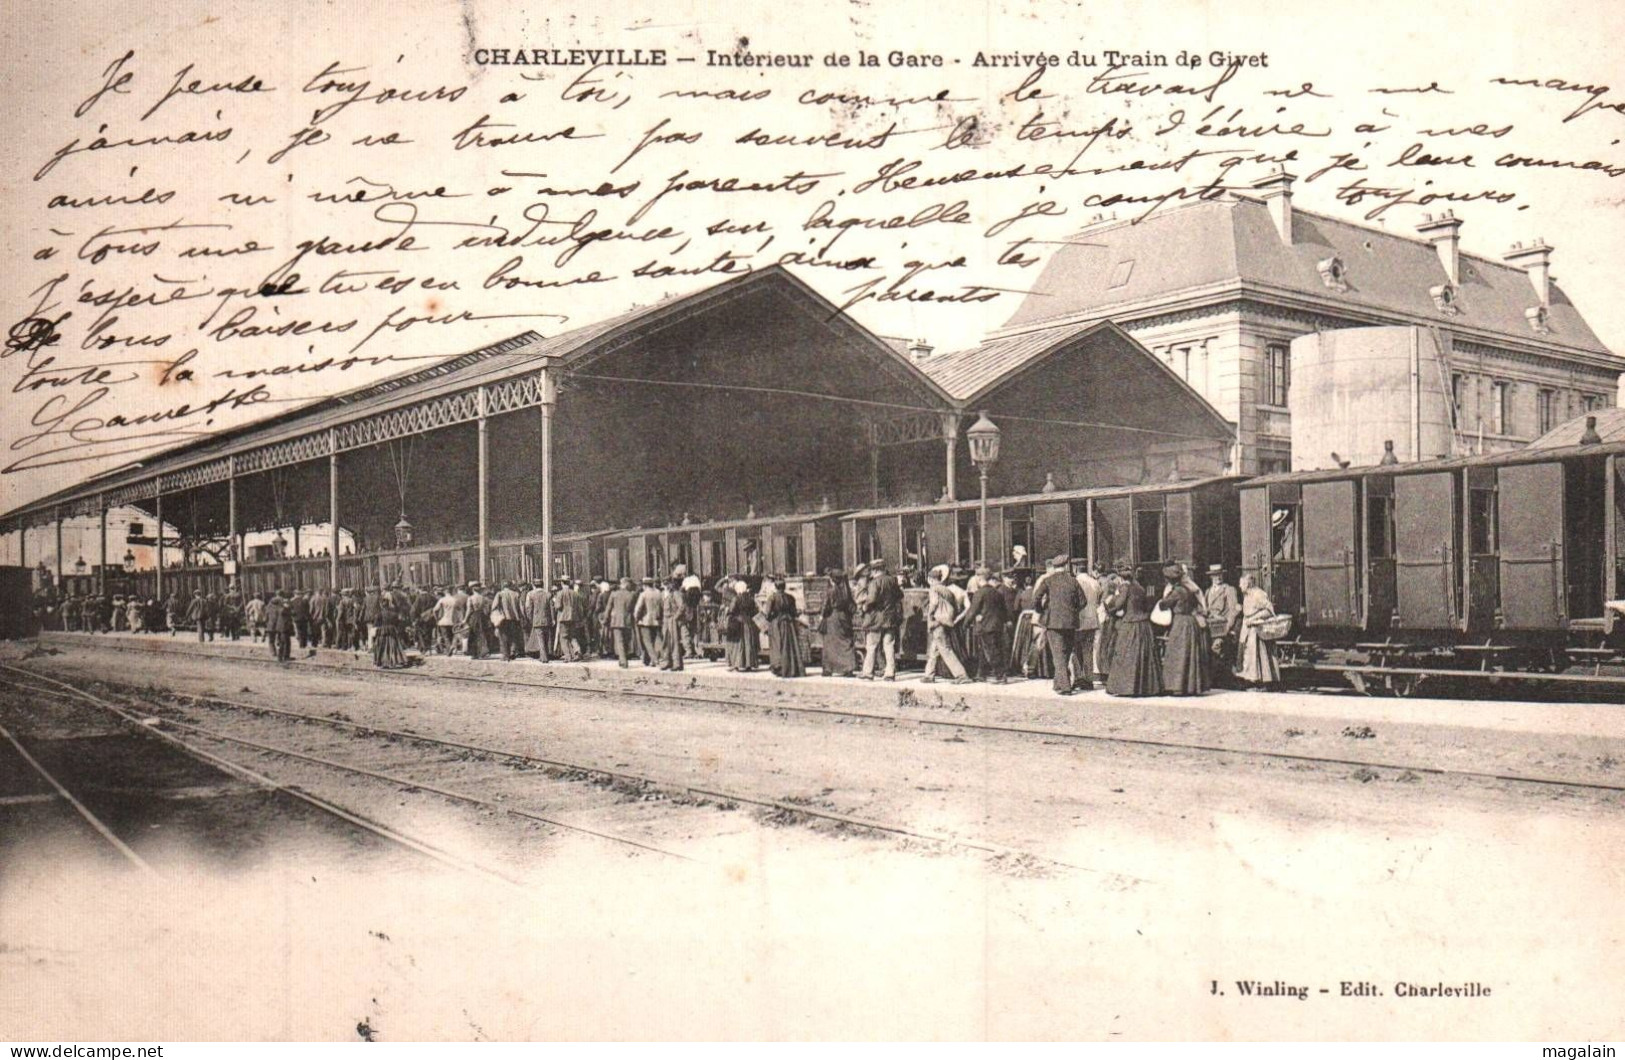 CHARLEVILLE – Intérieur de la Gare - Arrivée du Train de Givet
Je pense toujours à toi, mais comme le travail ne me manque
jamais, je ne trouve pas souvent le temps d'écrire à mes
amies ni même à mes parents. Heureusement que je leur connais
à tous une grande indulgence, sur laquelle je compte toujours.
J'espère que tu es en bonne santé, ainsi que tes
parents
De bons baisers pour
toute la maison
J. Winling – Edit. Charleville
magalain